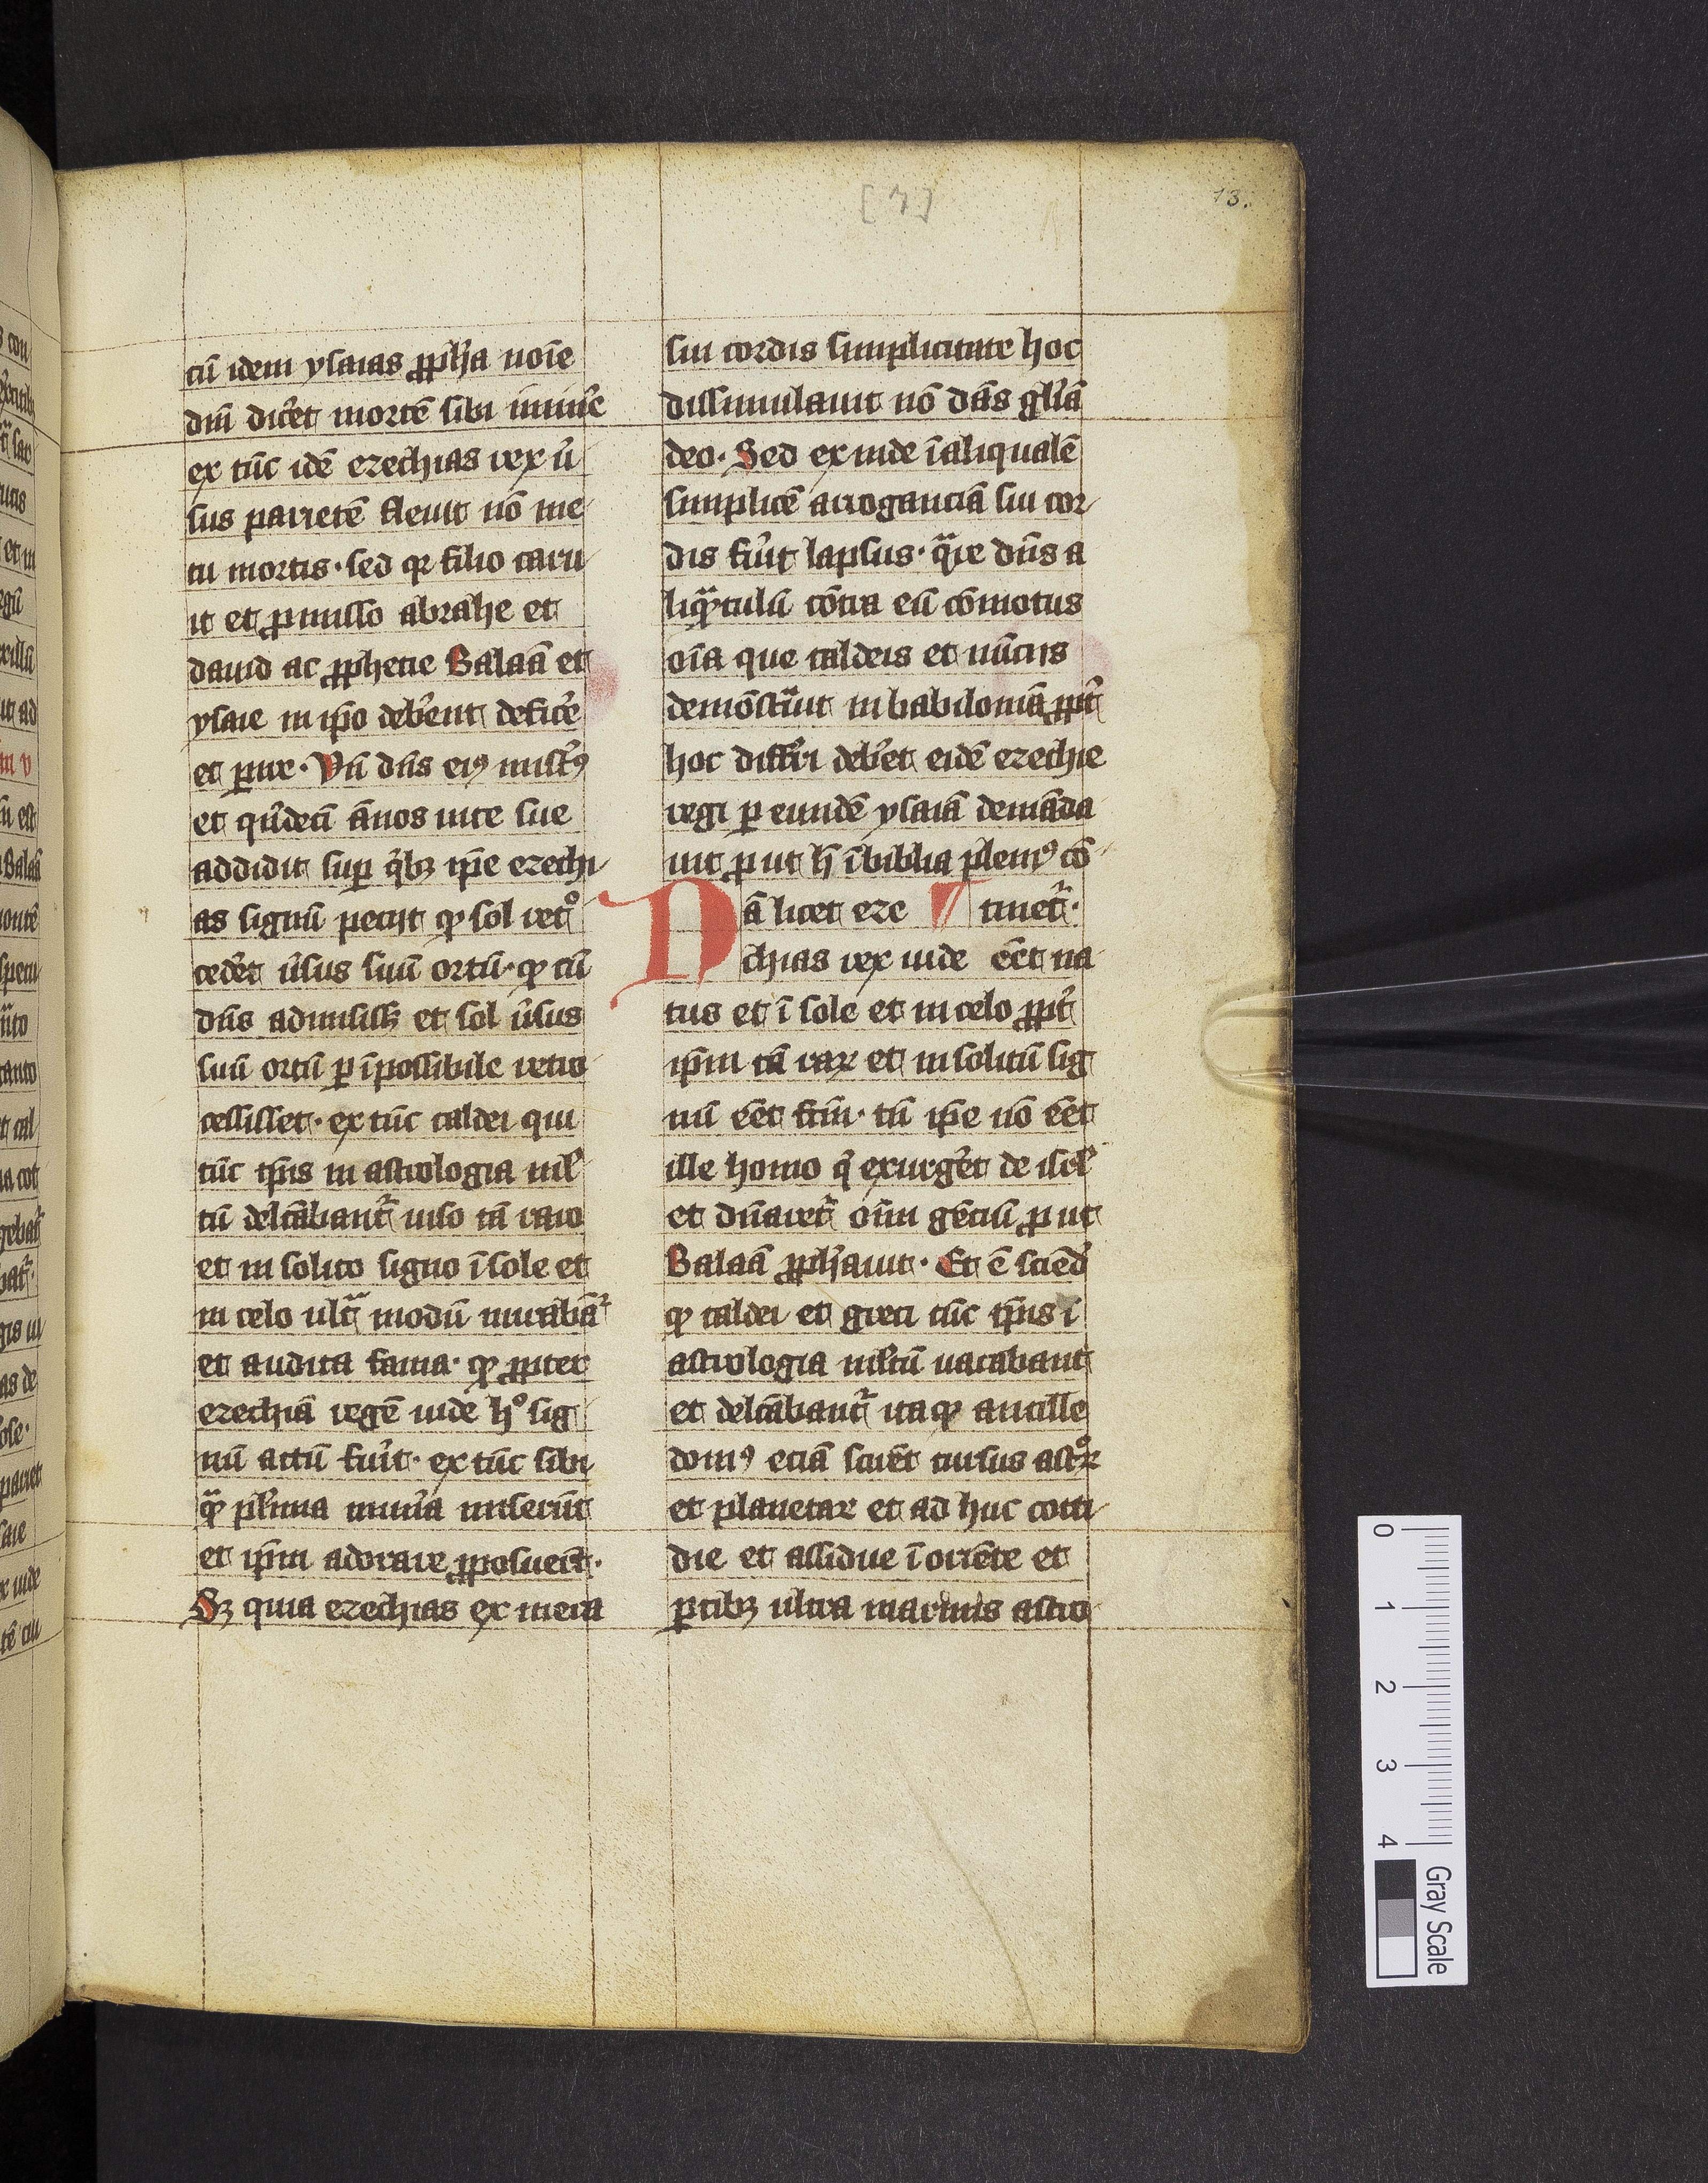 [7]
13.
cū idem ysaias ꝓph̄a noīe
dnī diceret mortē sibi īminē
ex tūc idē ezechias rex ū
sus parietē fleuit nō me
tu mortis · sed qꝛ filio caru
it et ꝓmisso abrahe et
dauid ac ꝓphetie Balaā et
ysaie in ip̄o deb̄ent defic̄e
et ꝑire · Vn̄ dn̄s eiꝰ misertꝰ
et qͥndecī ānos uite sue
addidit suꝑ qͥbꝫ ip̄e ezechi
as signū petijt ꝙ sol retͦ
ced̄et ūsus suū ortū · ꝙ cū
dn̄s admisissꝫ et sol ūsus
suū ortū ꝑ īpossibile retro
cessisset · ex tūc caldei qui
tūc tꝑis in astrologia ml̄
tū delc̄abant᷑ uiso tā raro
et in solito signo ī sole et
in celo ultͣ modū mirabāt᷑
et audita fama · ꝙ ꝓpter
ezechiā regē iude hͦ sig
nū actū fūit · ex tūc sibi
qͣꝫ pl̄ima mun̄a miserūt
et ip̄m adorare ꝓposuerūt ·
Sꝫ quia ezechias ex mera
sui cordis simplicitate hoc
dissimulauit nō dās gl̄iā
deo · Sed ex inde ī aliqualē
simplicē arrogantiā sui cor
dis fūit lapsus · qͣre dn̄s a
liqͣntulū cōtra eū cōmotus
oīa que caldeis et nūciis
demōstͣuit in babiloniā ꝓpt̄
hoc differri deb̄et eidē ezechie
regi ꝑ eundē ysaiā demāda
uit ꝓut h̄ ī biblia pleniꝰ cō
¶ tinet᷑ ·
Dā licet eze
chias rex iude eēt na
tus et ī sole et in celo ꝓpt̄
ip̄m tā raꝝ et in solitū sig
nū eēt fc̄m · tn̄ ip̄e nō eēt
ille homo qͥ exurḡet de isrl̄
et dn̄aret᷑ oīm gēciū ꝓut
Balaā ꝓph̄auit · Et ē sciēd̄
ꝙ caldei et greci tūc tꝑis ī
astrologia ml̄tū uacabant
et delc̄abant᷑ ita ꝙ ancille
domꝰ eciā sciūt cursus astͦꝝ
et planetaꝝ et ad huc cotti
die et assidue ī oriēte et
ꝑtibꝫ ultra marinis astro
0
1
2
3
4
Gray Scale